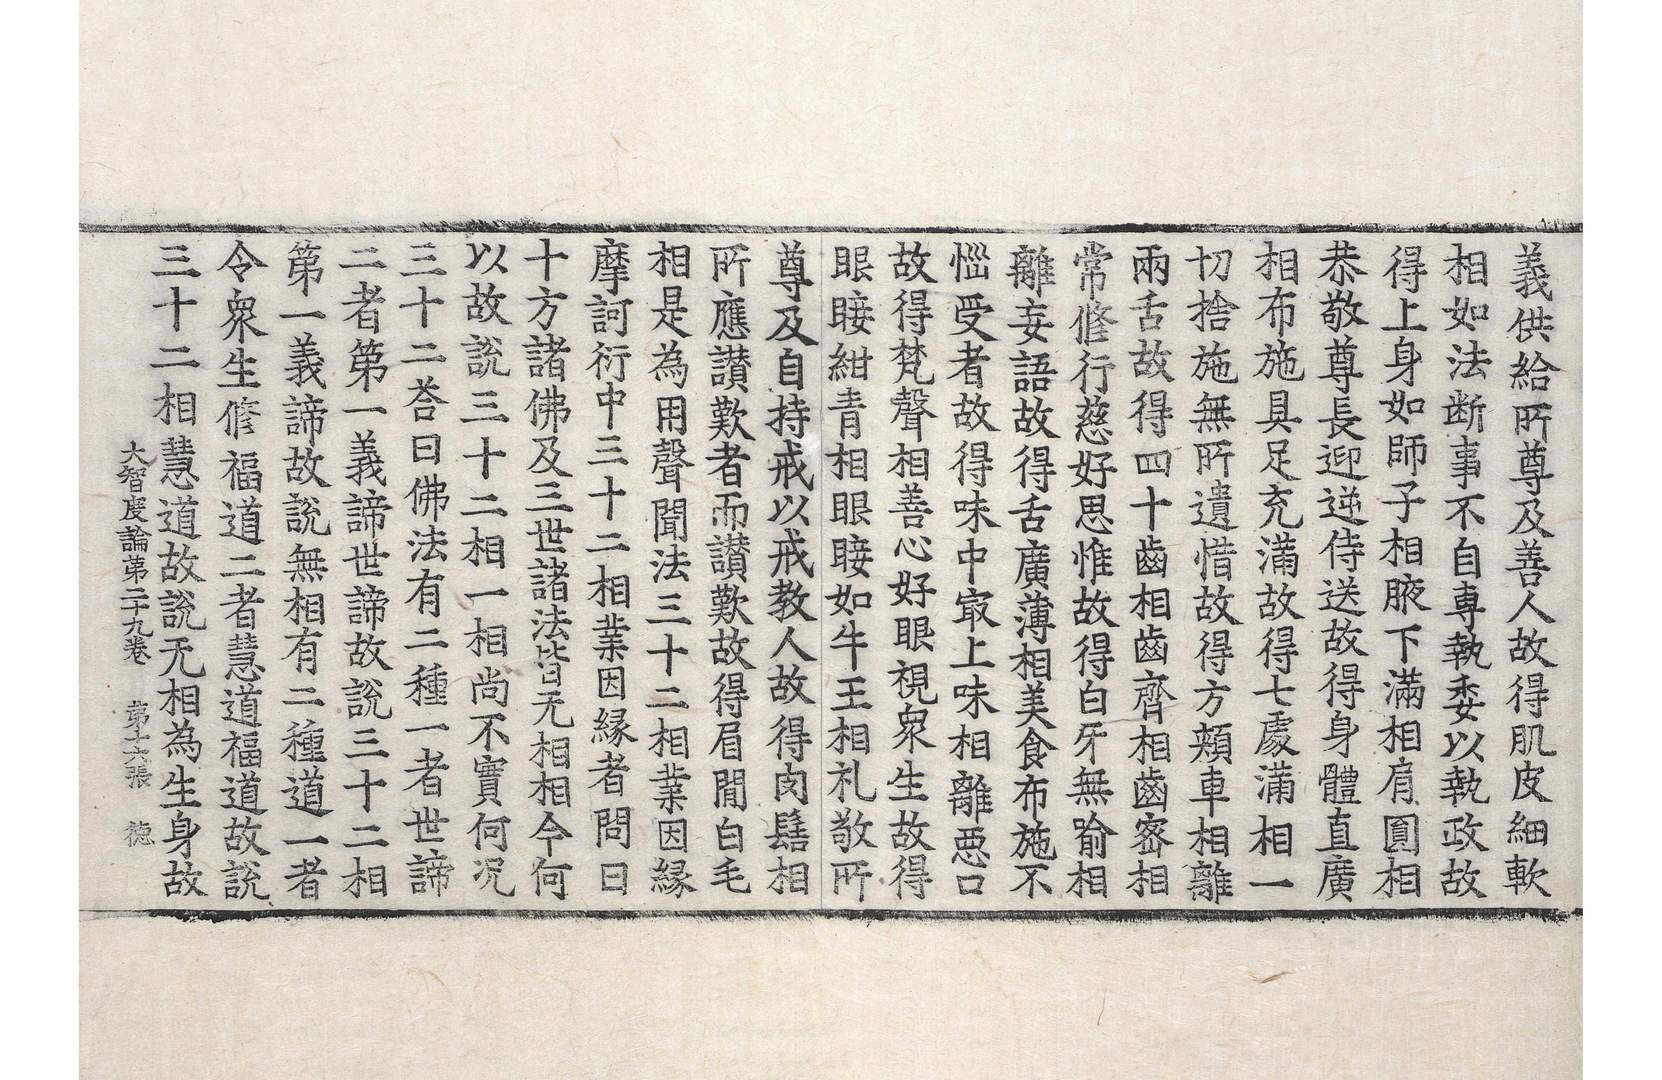 義供給所尊及善人故得肌皮細軟
相如法断事不自専執委以執政故
得上身如師子相腋下滿相肩圓相
恭敬尊長迎逆侍送故得身體直廣
相布施具足充滿故得七處滿相一
切捨施無所遺惜故得方頰車相離
兩舌故得四十齒相齒齊相齒密相
常修行慈好思惟故得白牙無喻相
離妄語故得舌廣薄相美食布施不
惱受者故得味中㝡上味相離惡口
故得梵聲相善心好眼視衆生故得
眼睫紺青相眼睫如牛王相礼敬所
尊及自持戒以戒教人故得肉髻相
所應讃歎者而讃歎故得眉閒白毛
相是為用聲聞法三十二相業因緣
摩訶衍中三十二相業因緣者問曰
十方諸佛及三世諸法皆无相相今何
以故說三十二相一相尚不實何况
三十二荅曰佛法有二種一者世諦
二者第一義諦世諦故說三十二相
第一義諦故說無相有二種道一者
令衆生修福道二者慧道福道故說
三十二相慧道故說无相為生身故
大智度論第二十九卷　第十六張　徳